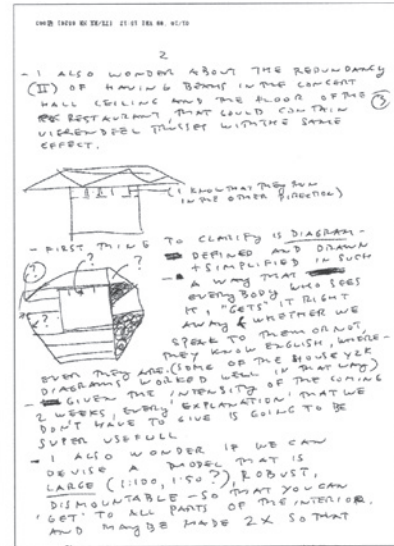 2
- I ALSO WONDER ABOUT THE REDUNDANCY
(II) OF HAVING BEAMS IN THE CONCERT
HALL CEILING AND THE FLOOR OF THE
RESTAURANT, THAT COULD CONTAIN
VIERENDEEL TRUSSES WITH THE SAME
EFFECT.
3
(I KNOW THAT THEY RUN
IN THE OTHER DIRECTION)
- FIRST THING TO CLARIFY IS DIAGRAM -
DEFINED AND DRAWN
+ SIMPLIFIED IN SUCH
A WAY THAT
EVERYBODY WHO SEES
IT, "GETS" IT RIGHT
AWAY & WHETHER WE
SPEAK TO THEM OR NOT,
THEY KNOW ENGLISH, WHERE-
EVER THEY ARE. (SOME OF THE HOUSE Y2K
DIAGRAMS WORKED WELL IN THAT WAY)
- GIVEN THE INTENSITY OF THE COMING
2 WEEKS, EVERY 'EXPLANATION' THAT WE
DON'T HAVE TO GIVE IS GOING TO BE
SUPER USEFULL
- I ALSO WONDER IF WE CAN
DEVISE A MODEL THAT IS
LARGE (1:100, 1:50 ?), ROBUST,
DISMOUNTABLE - SO THAT YOU CAN
'GET' TO ALL PARTS OF THE INTERIOR.
AND MAYBE MADE 2X SO THAT
?
?
?
?